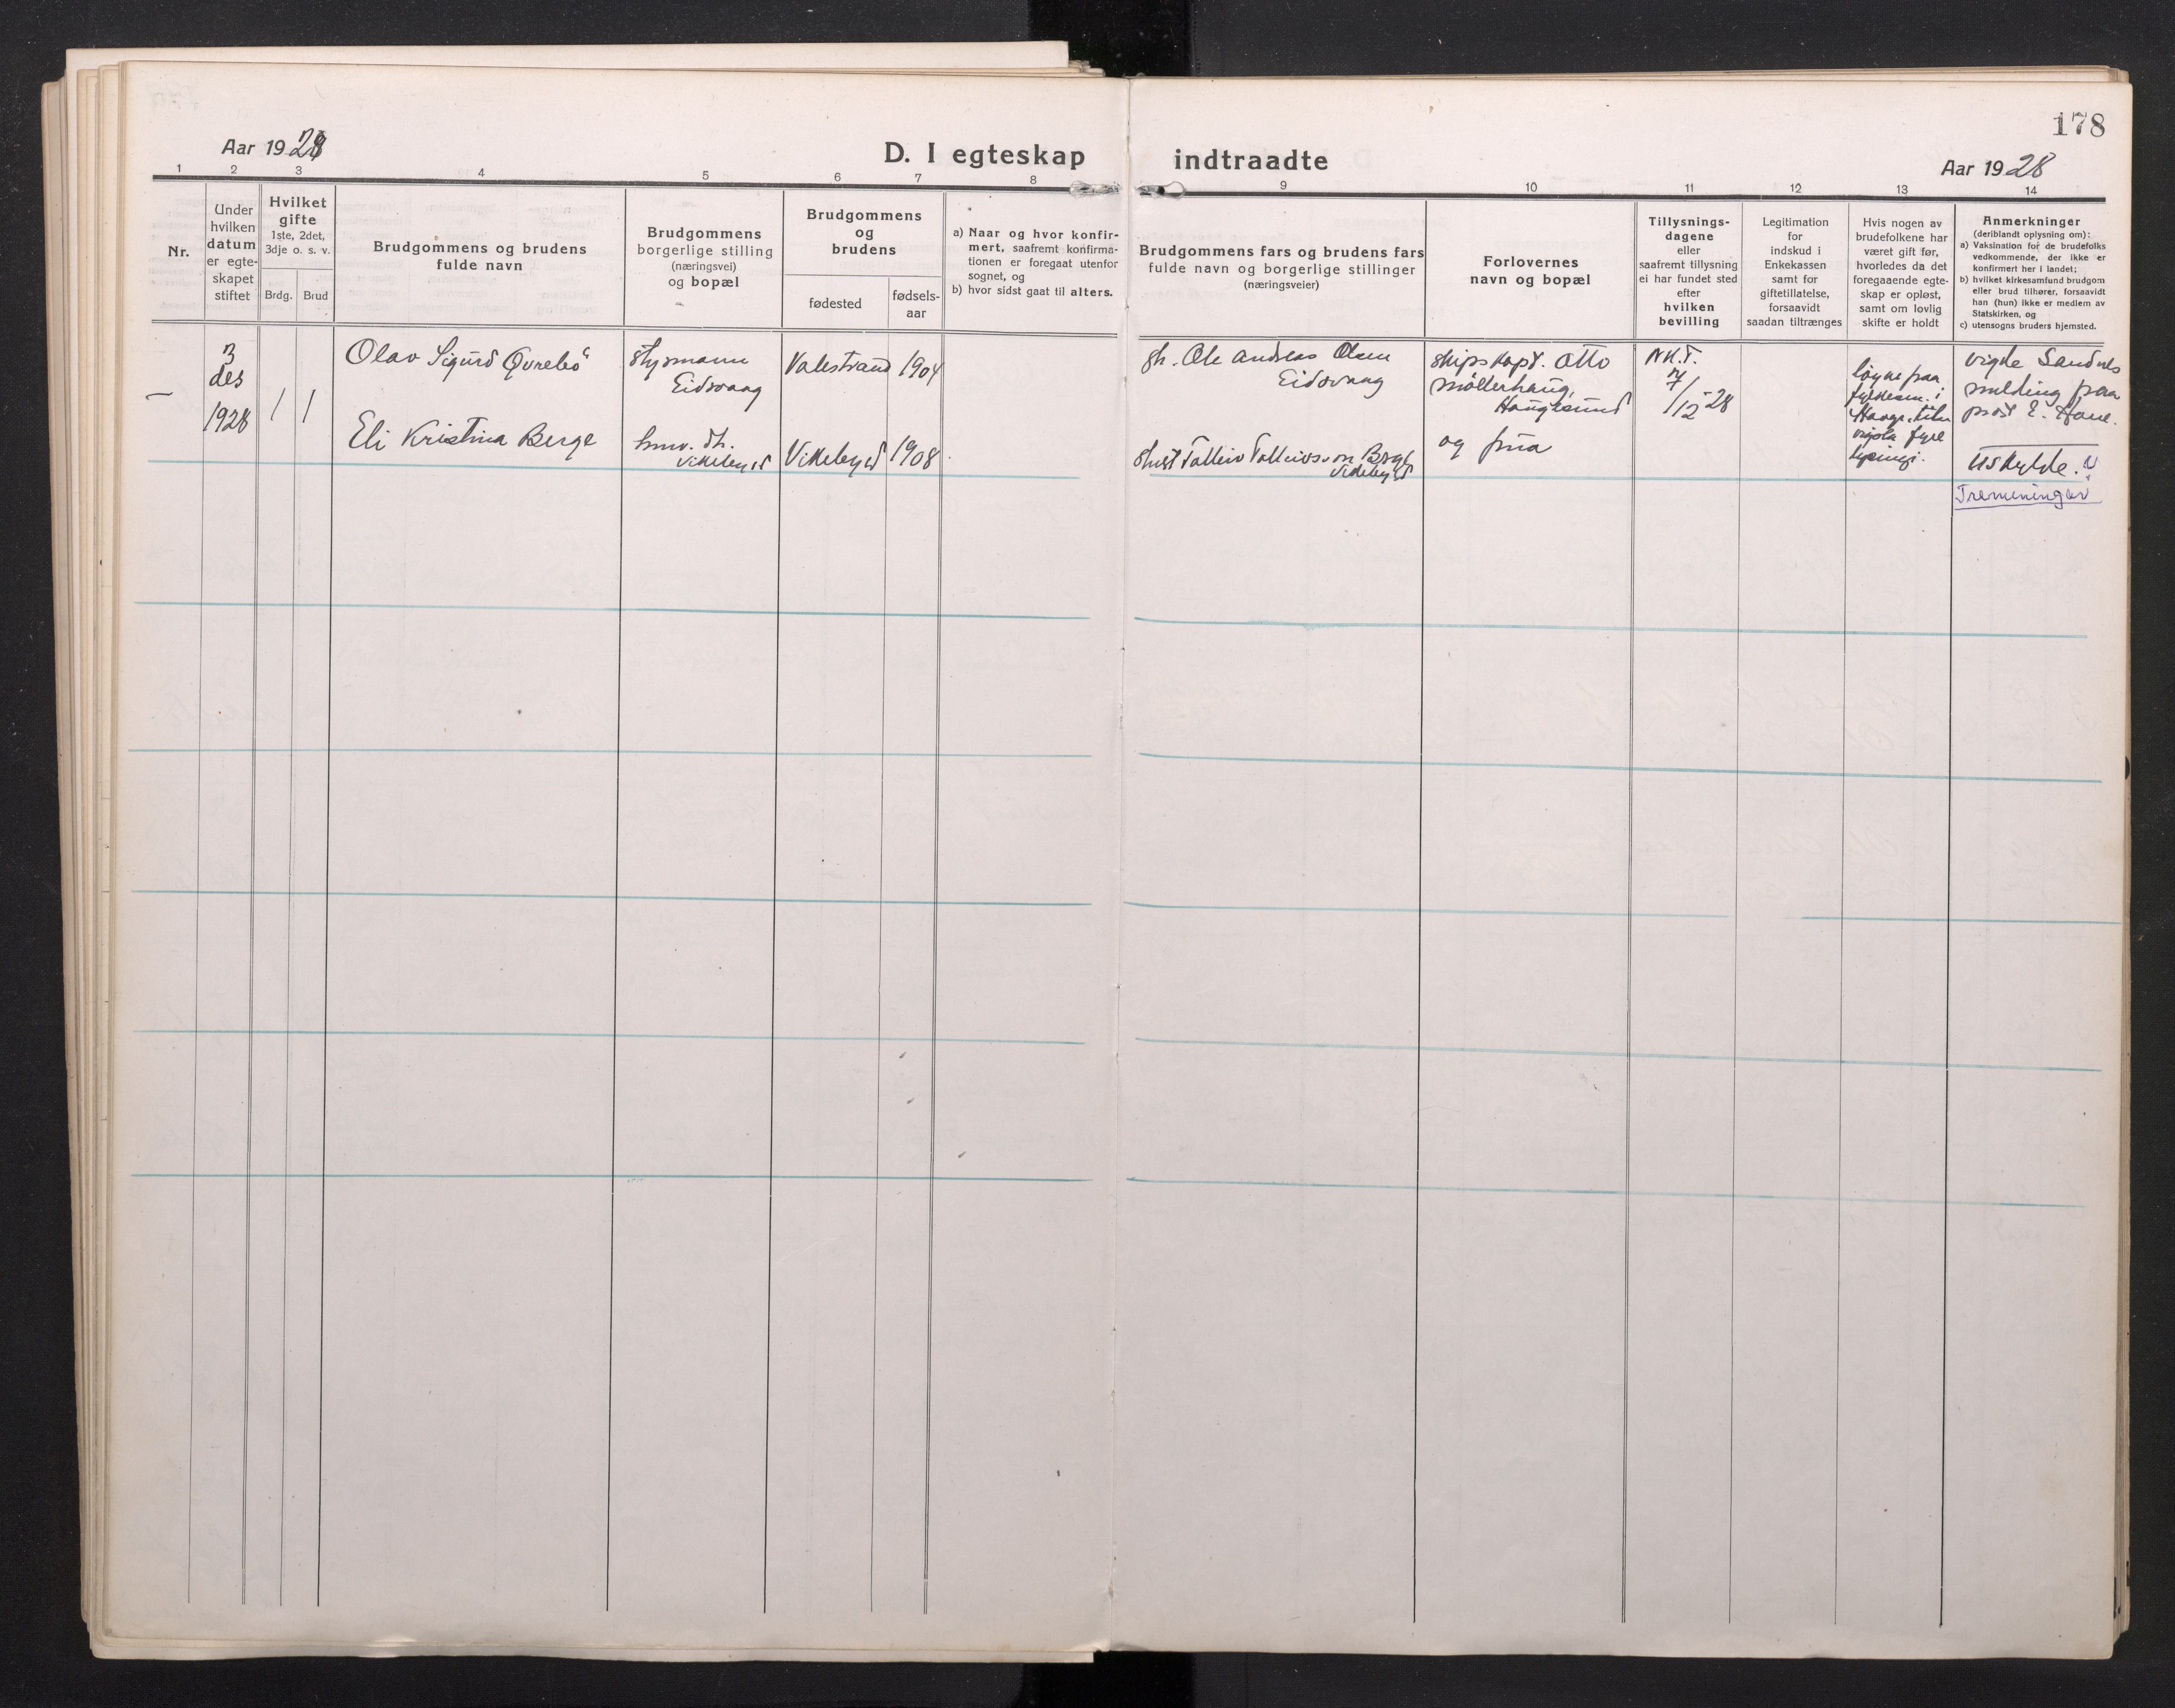 178
Aar 1928
D. I egteskap indtraadte
Aar 1928
1 2 3 4 5 6 7 8 9 10 11 12 13 14
Nr.
Under
hvilken
datum
er egte-
skapet
stiftet
Hvilket
gifte
1ste, 2det,
3dje o. s. v.
Brdg. Brud
Brudgommens og brudens
fulde navn
Brudgommens
borgerlige stilling
(næringsvei)
og bopæl
Brudgommens
og
brudens
fødested
fødsels-
aar
a) Naar og hvor konfir-
mert, saafremt konfirma-
tionen er foregaat utenfor
sognet, og
b) hvor sidst gaat til alters.
Brudgommens fars og brudens fars
fulde navn og borgerlige stillinger
(næringsveier)
Forlovernes
navn og bopæl
Tillysnings-
dagene
eller
saafremt tillysning
ei har fundet sted
efter
hvilken
bevilling
Legitimation
for
indskud i
Enkekassen
samt for
giftetillatelse,
forsaavidt
saadan tiltrænges
Hvis nogen av
brudefolkene har
været gift før,
hvorledes da det
foregaaende egte-
skap er opløst,
samt om lovlig
skifte er holdt
Anmerkninger
(deriblandt oplysning om):
a) Vaksination for de brudefolks
vedkommende, der ikke er
konfirmert her i landet;
b) hvilket kirkesamfund brudgom
eller brud tilhører, forsaavidt
han (hun) ikke er medlem av
Statskirken, og
c) utensogns bruders hjemsted.
—
3
des
1928
1 1
Olav Sigurd Øvrebö
Eli Kristina Berge
styrmann
Eidsvaag
hmv. dt.
Vikebygd
Valestrand 1904
Vikebygd 1908
gh. Ole Andreas Olsen
Eidsvaag
Tolleiv Tolleivson Berge
Vikebygd
skipskapt. Otto
Møllerhaug,
Haugesund
og frua
N.K.T.
7/12-28
løyne paa
i
Hauge
lysingi.
vigde Sandnes
melding paa
prost E.
Uskylde.?
Tremeninger